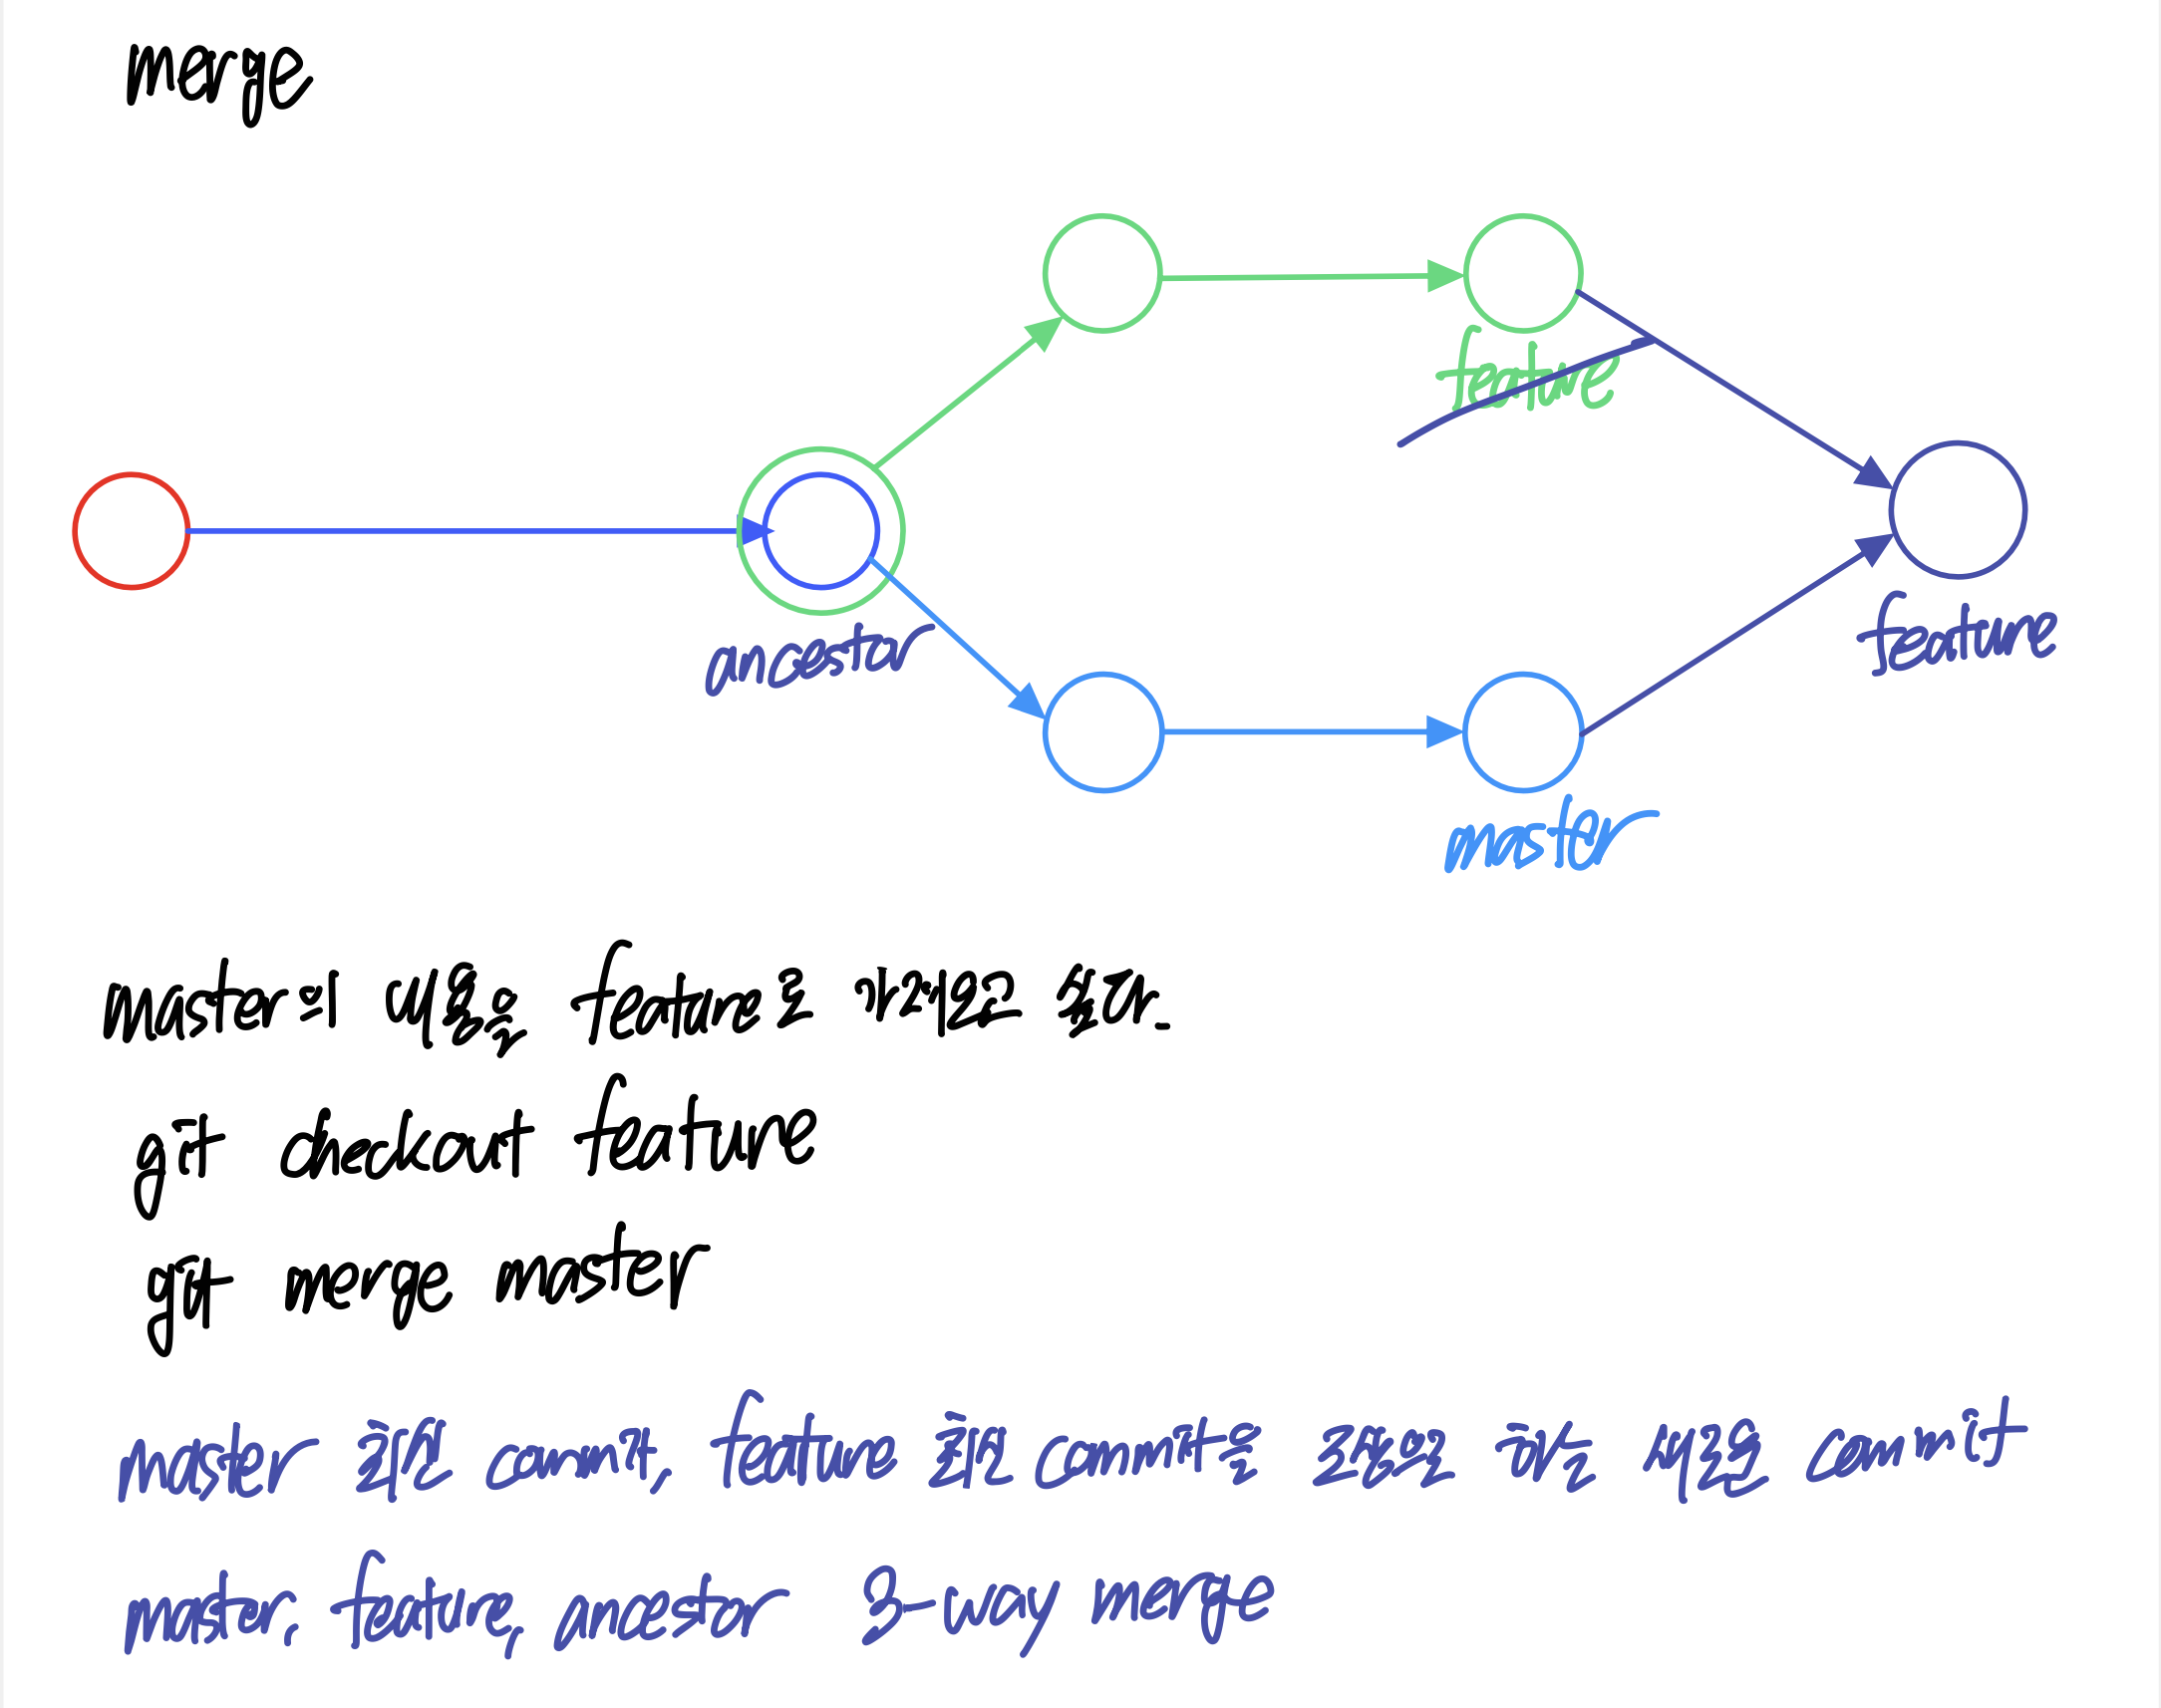 merge
feature
ancestor
feature
master
master의 내용을 feature로 가져오고 싶다.
git checkout feature
git merge master
master 최신 commit, feature 최신 commit을 조합해 새로운 commit
master, feature, ancestor 3-way merge